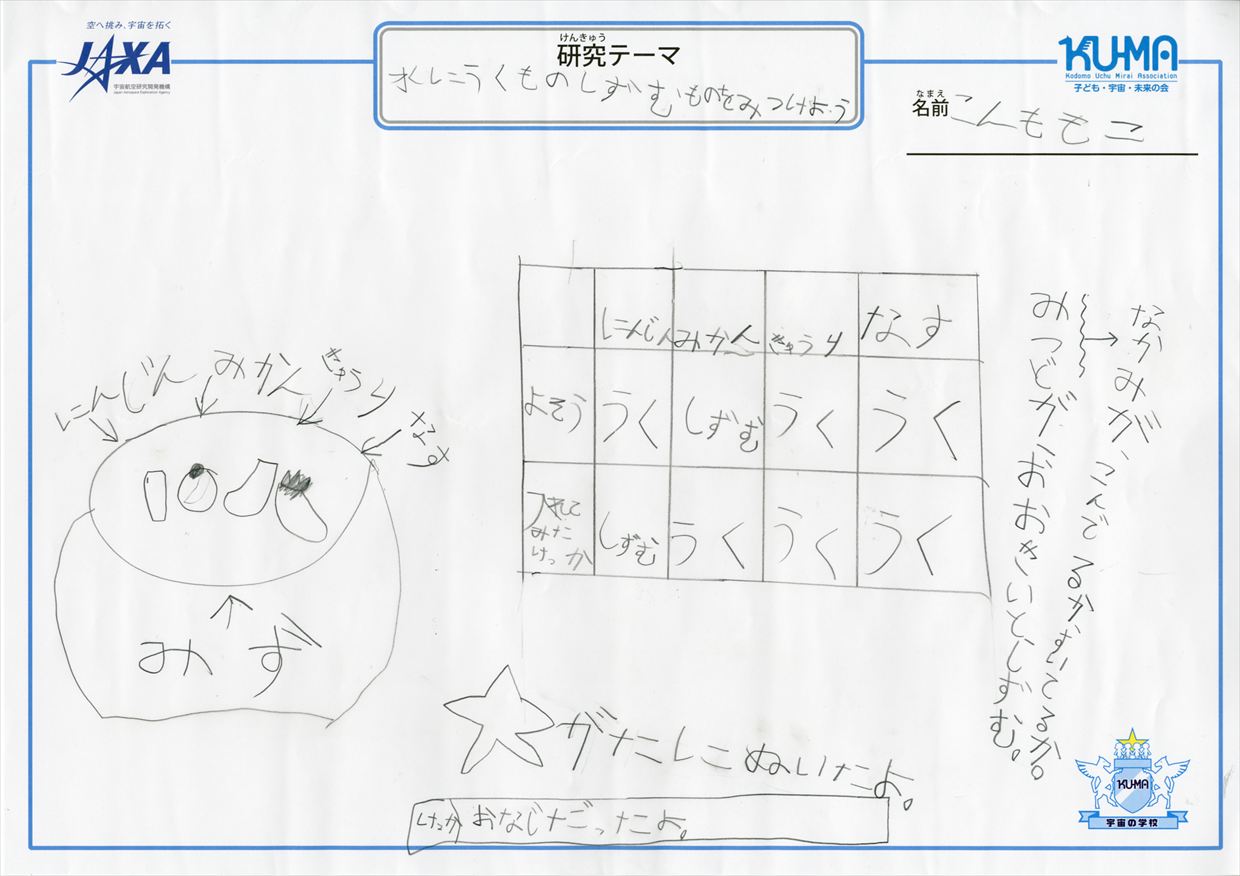 空へ挑み、宇宙を拓く
JAXA
宇宙航空研究開発機構
Japan Aerospace Exploration Agency
けんきゅう
研究テーマ
水にうくものしずむものをみつけよう
KU-MA
Kodomo Uchu Mirai Association
子ども・宇宙・未来の会
なまえ
名前 こんももこ
にんじん みかん きゅうり なす
みず
にんじん みかん きゅうり なす
よそう うく しずむ うく うく
入れてみたけっか しずむ うく うく うく
なかみが、こんでるかすいてるか。
みつどがおおきいとしずむ。
がたにしこぬいたよ。
けっか おなじだったよ。
KU-MA
宇宙の学校